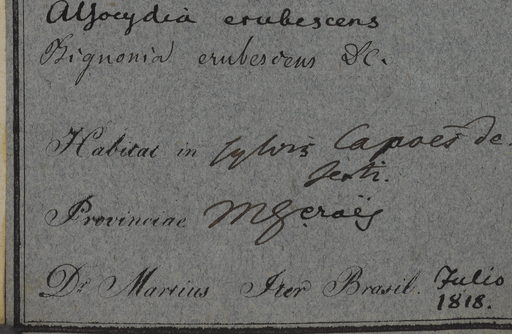 Alsocydia erubescens
Bignonia erubescens DC.
Habitat in sylvis Capoes de-
serti.
Provinciae MGeraës
Dr Martius Iter Brasil. Julio
1818.